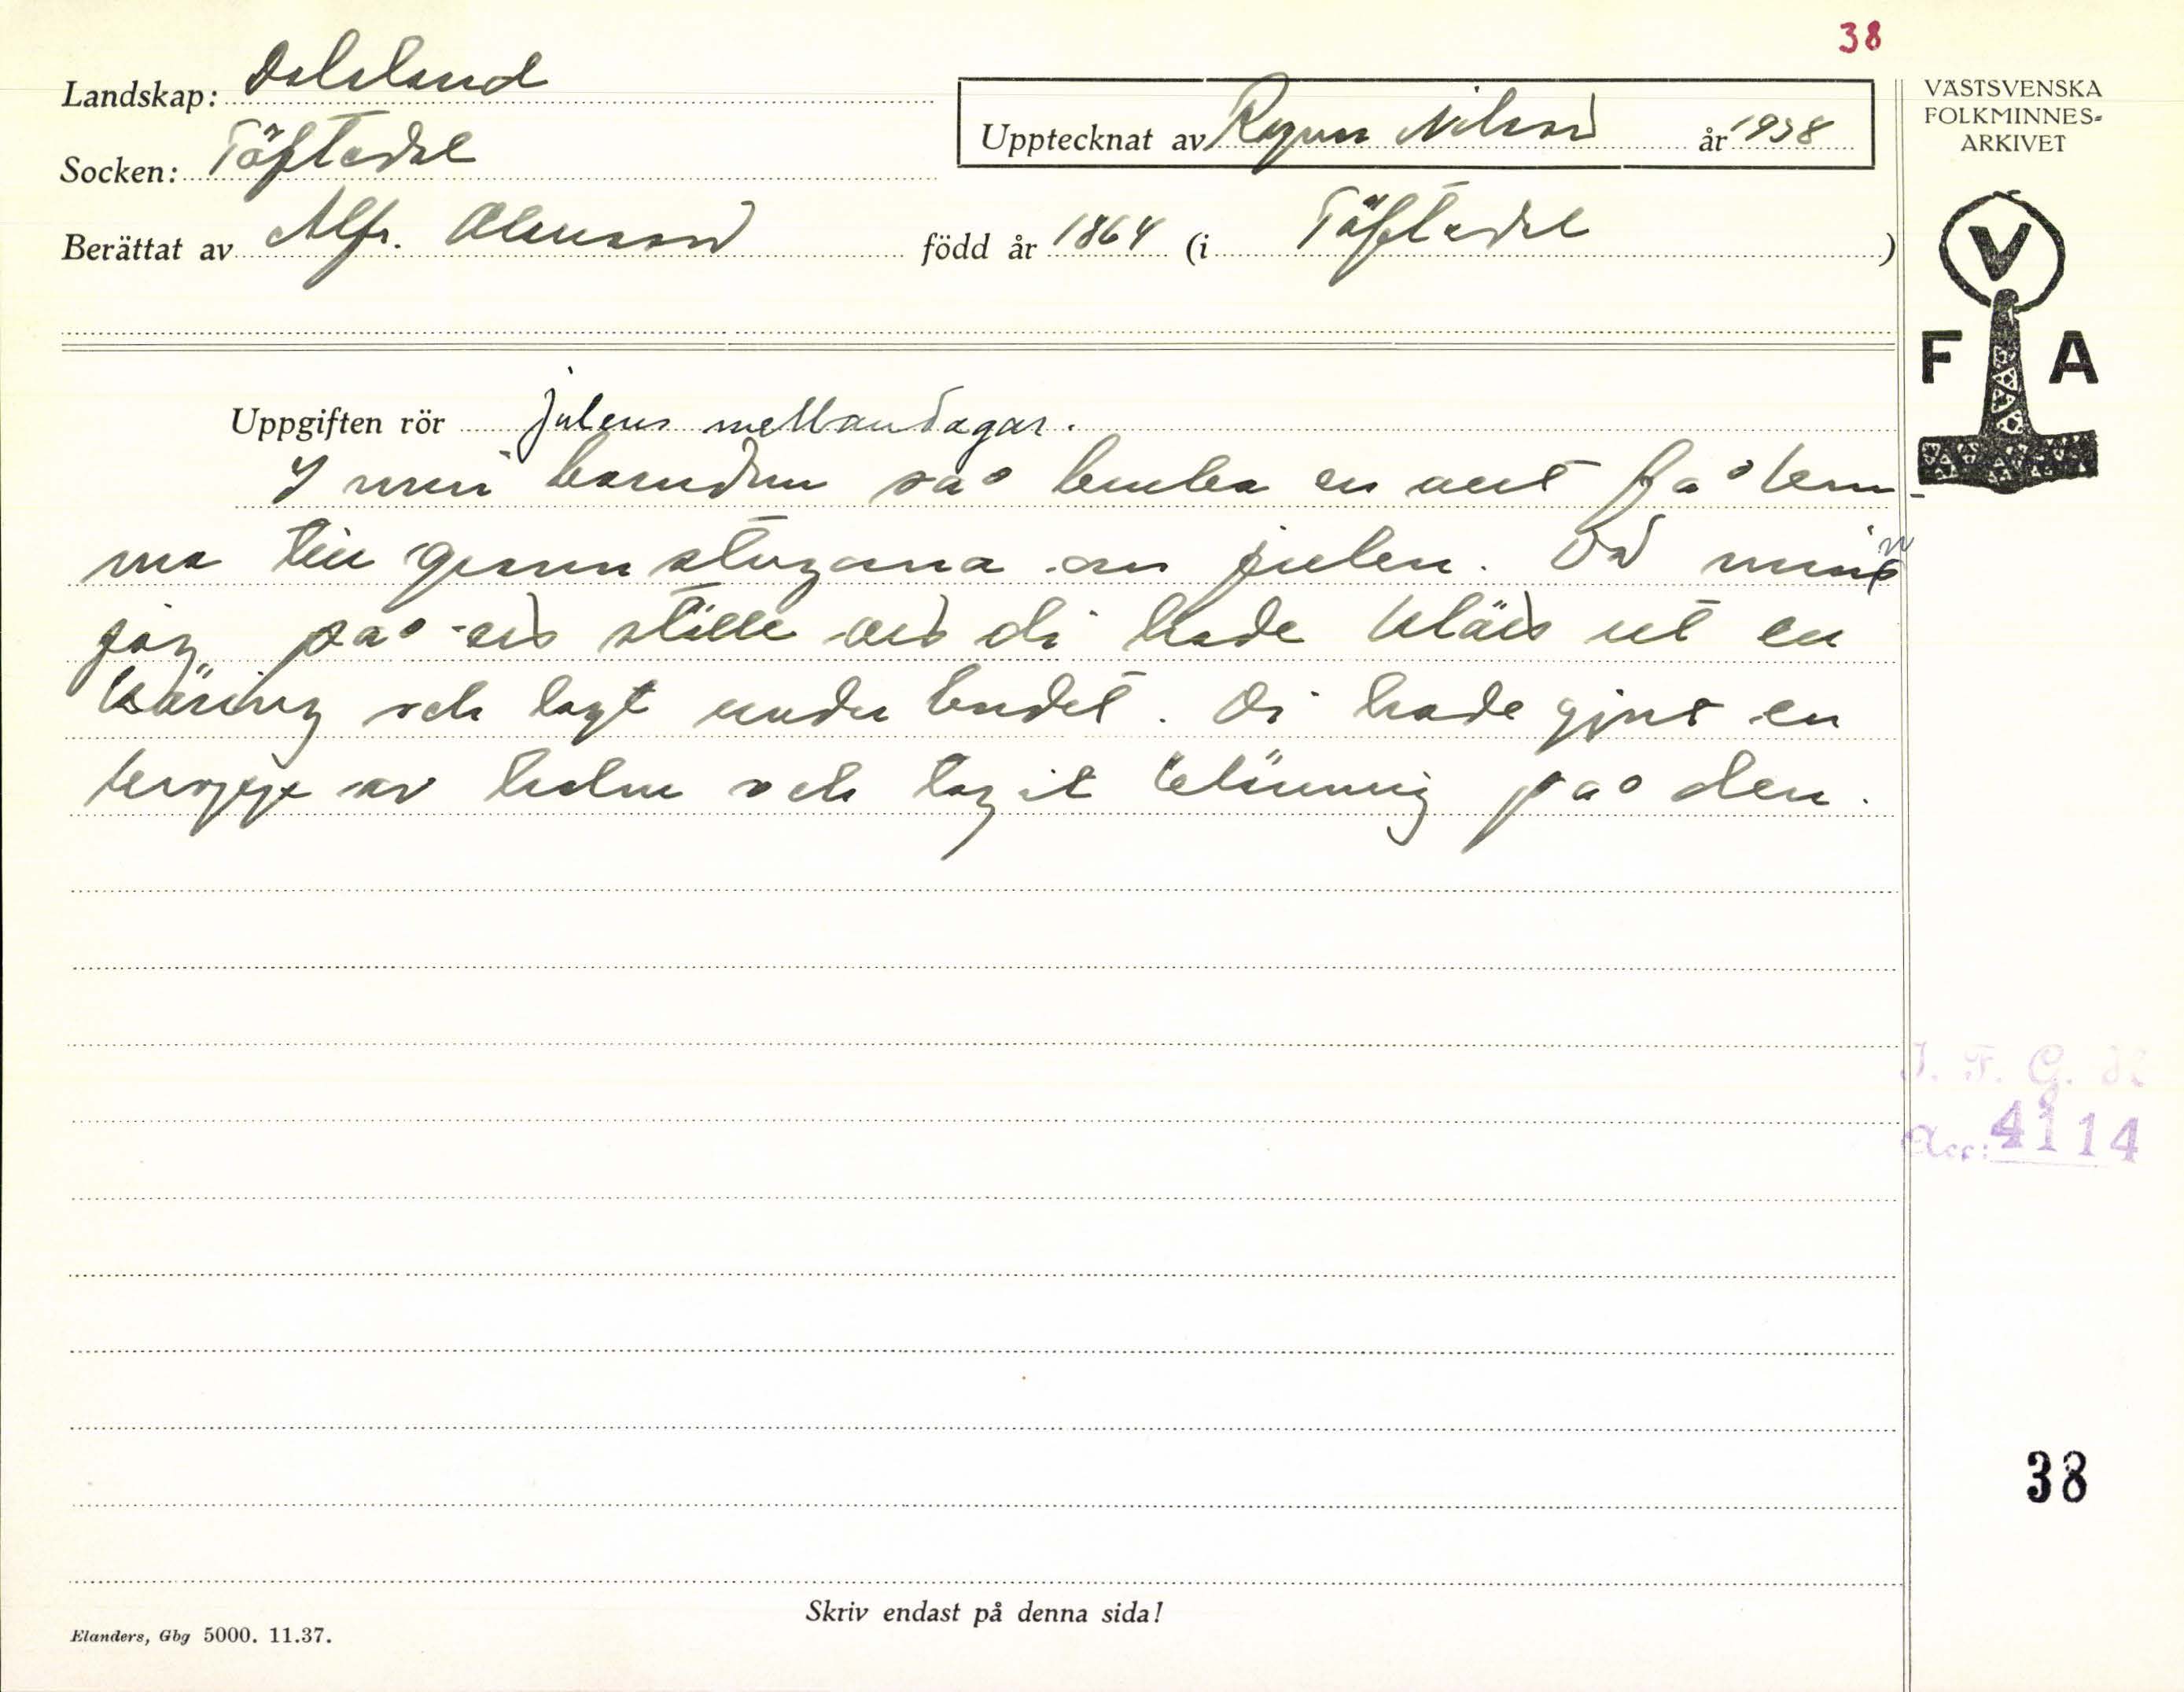 38
Landskap: Dalsland
Socken: Töftedal
Upptecknat av Ragnar Nilsson år 1938
Berättat av Alfr. Olausson född år 1864 (i Töftedal)
VÄSTSVENSKA
FOLKMINNES-
ARKIVET
V
F A
Uppgiften rör julens mellandagar.
I min barndom så en att gå
till stugorna om julen. Då minns
jag på ett ställe att di hade klätt ut en
käring och lagt under bordet. Di hade gjort en
kropp av halm och tagit klänning på den.
I. F. G. H
Acc: 4114
38
Skriv endast på denna sida!
Elanders, Gbg 5000. 11.37.